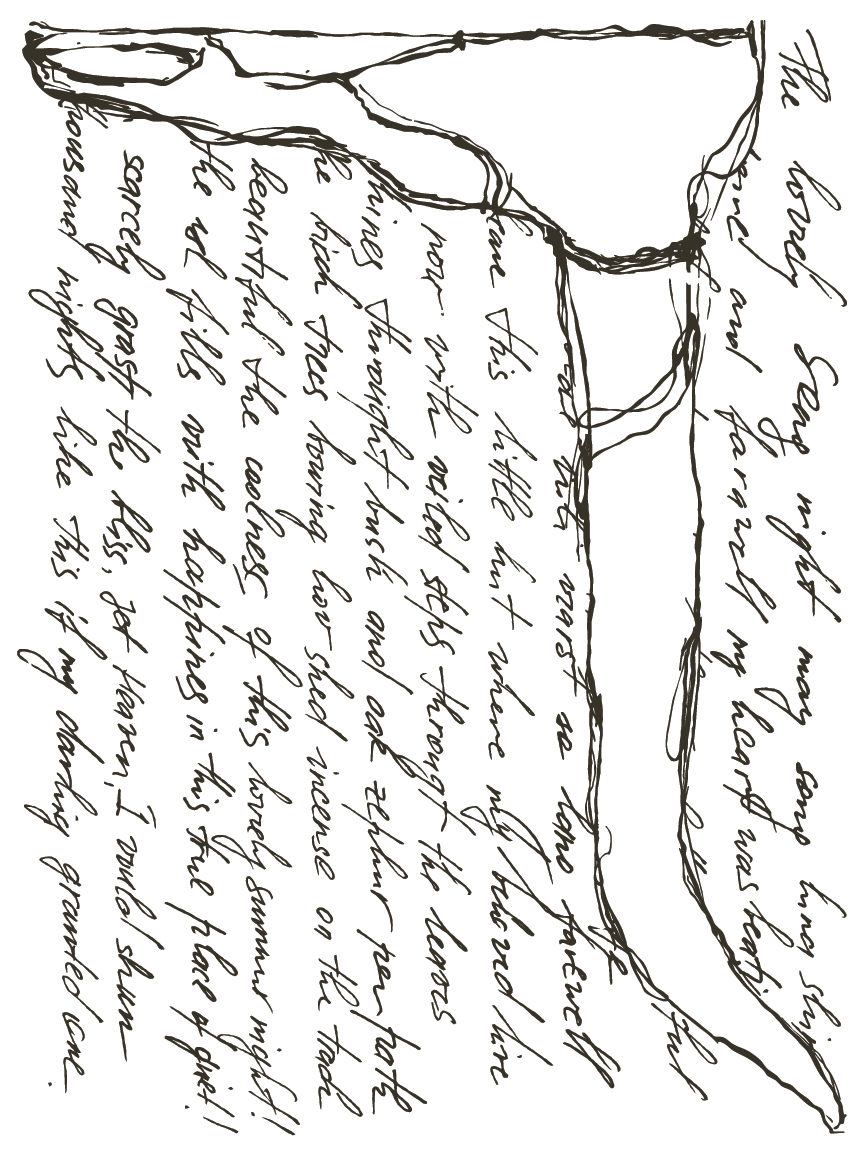 The lovely Song night may song
and farwell my heart was beati
but wurst so long farewell fe
this little hut where my bilovd live
now with veiled steps throught the leaves
things throught bush and oak zephur per path
he birch trees bowing low shed incense on the track
beautiful the coolness of this lovely summur night!
the sol fills with happines in this true place of quiet!
scarcely grast the bliss, jet Heaven, I would shun
housand nights like this if my darling granted one.